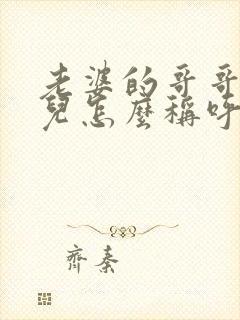 老婆的哥哥
兒怎麼稱呼
齊秦